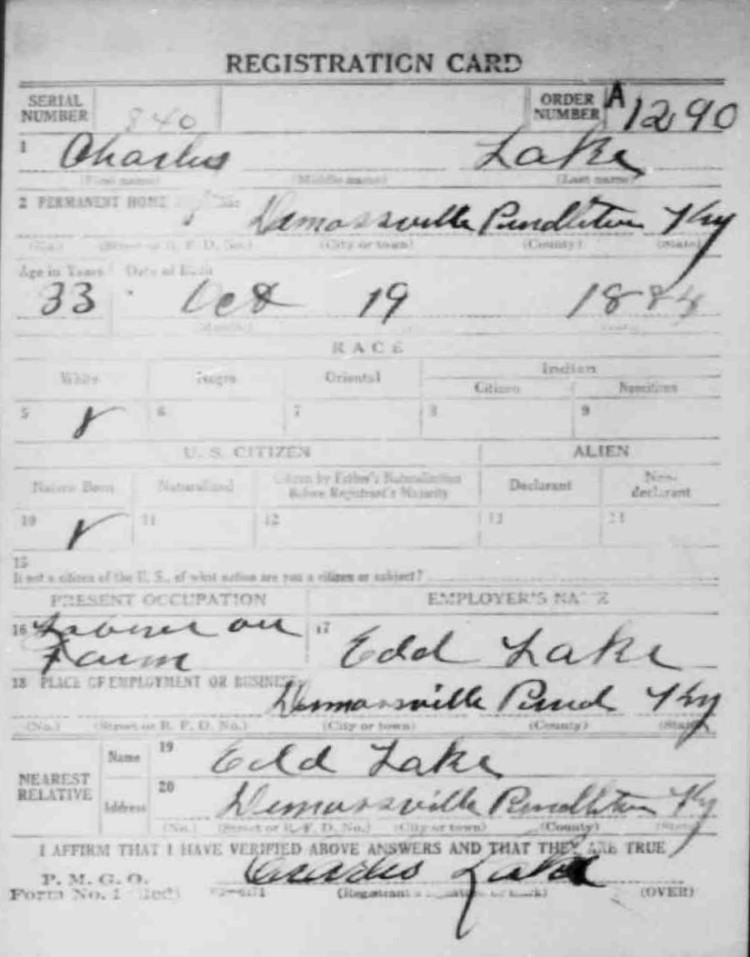 REGISTRATION CARD
SERIAL NUMBER 840 ORDER NUMBER A 1290
1 Charles Lake
(First name) (Middle name) (Last name)
2 PERMANENT HOME
Demossville Pendleton Ky
(No.) (Street or R. F. D. No.) (City or town) (County) (State)
Age in Years Date of Birth
33 Oct 19 1884
RACE
White Negro Oriental Indian
Citizen Noncitizen
5 6 7 8 9
U. S. CITIZEN ALIEN
Native Born Naturalized Citizen by Father's Naturalization Before Registrant's Majority Declarant Non-declarant
10 11 12 13 14
15
If not a citizen of the U. S., of what nation are you a citizen or subject?
PRESENT OCCUPATION EMPLOYER'S NAME
16 Laborer on Farm 17 Edd Lake
18 PLACE OF EMPLOYMENT OR BUSINESS
Demossville Pend Ky
(No.) (Street or R. F. D. No.) (City or town) (County) (State)
NEAREST RELATIVE Name 19 Edd Lake
Address 20 Demossville Pendleton Ky
(No.) (Street or R. F. D. No.) (City or town) (County) (State)
I AFFIRM THAT I HAVE VERIFIED ABOVE ANSWERS AND THAT THEY ARE TRUE
P. M. G. O.
Form No. 1 (Red) Charles Lake
(Registrant's signature or mark) (OVER)